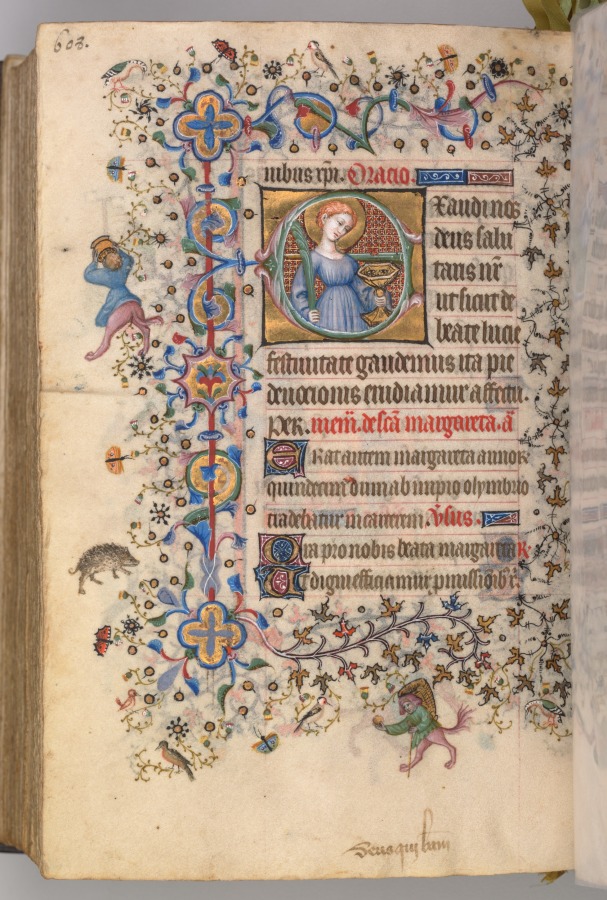 608.
nibus xpi. Oracio.
Exaudi nos
deus salu
taris nr
ut sicut de
beate lucie
festiuitate gaudemus ita pie
deuocionis erudiamur affectu.
Per. mem. de scã margareta. ã
Erat autem margareta annor
quindecim dum ab impio olymbrio
tradebatur in carcerem. Vsus.
Ora pro nobis beata margareta R
Vt digni efficiamur pmissioib
Deus qui bam